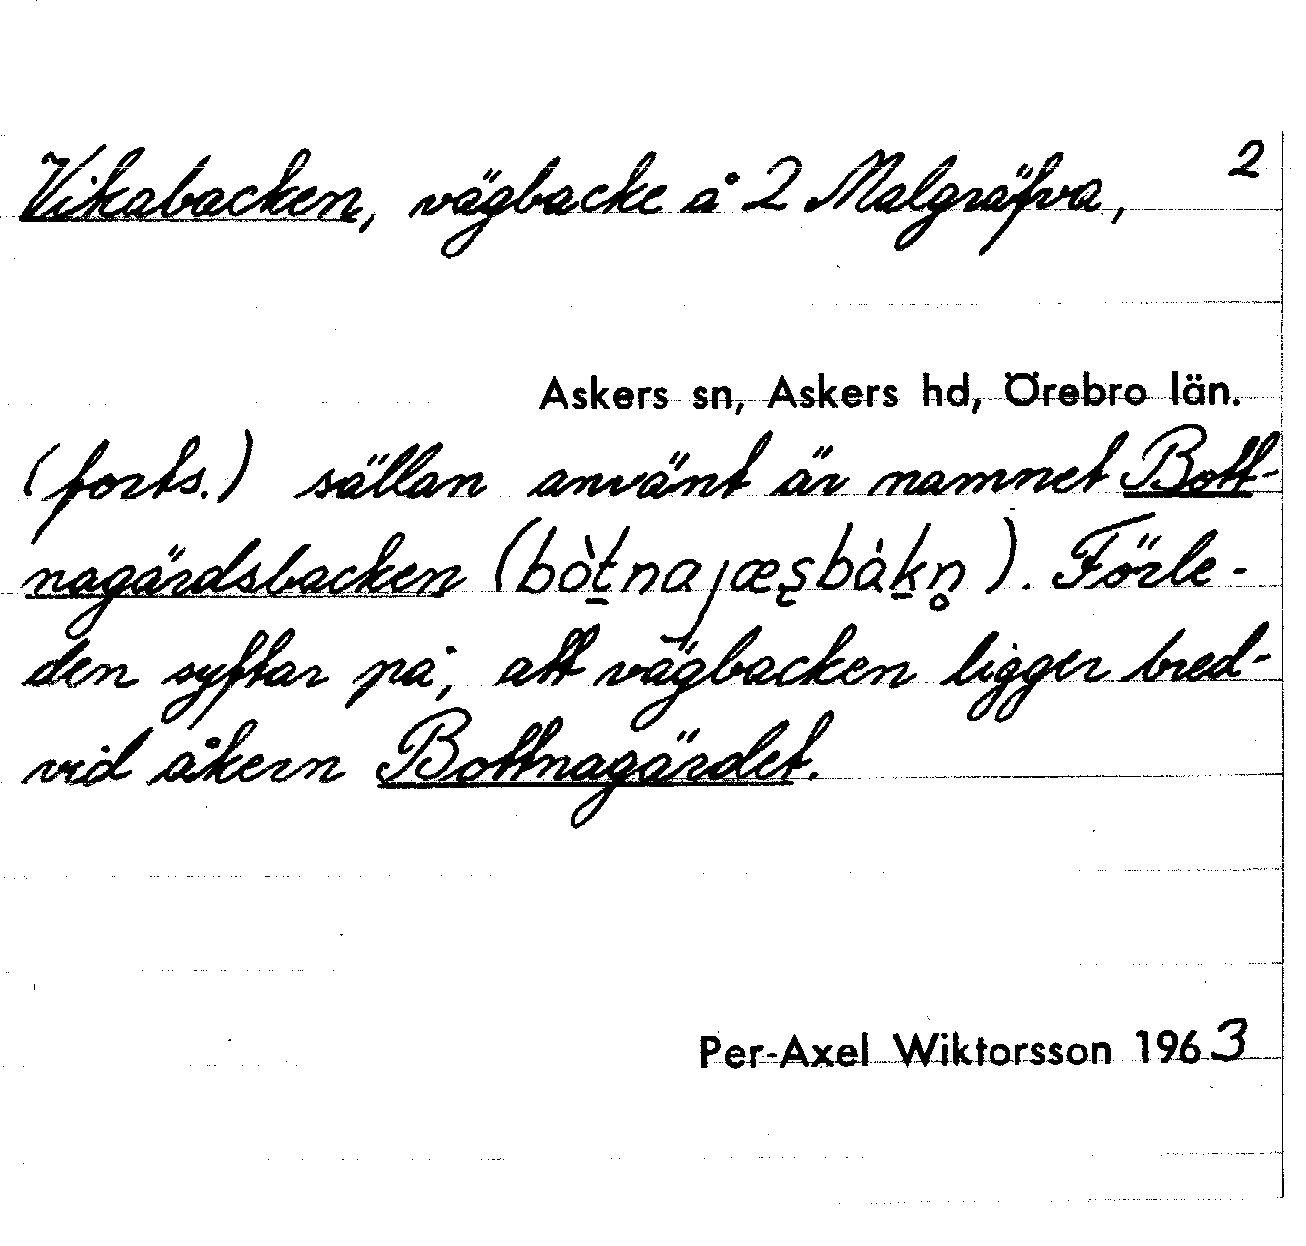 Vikabacken, vägbacke å 2 Malgräfva, 2
Askers sn, Askers hd, Örebro län.
(forts.) sällan använt är namnet Bott-
nagärdsbacken (bòt̠najæʂbàk̠n̥). Förle-
den syftar på, att vägbacken ligger bred-
vid åkern Bottnagärdet.
Per-Axel Wiktorsson 1963